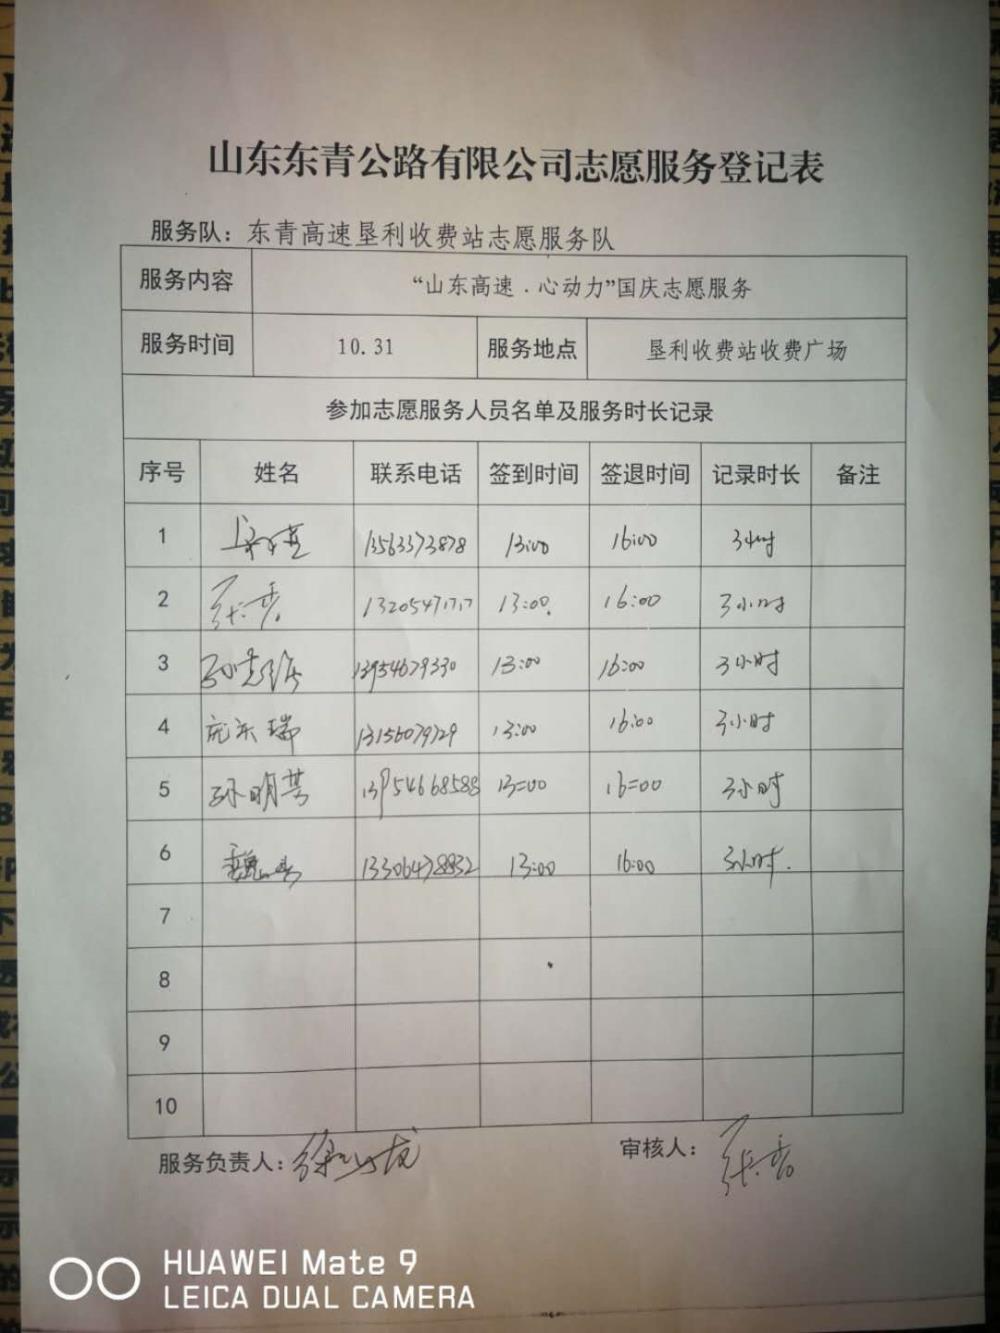 山东东青公路有限公司志愿服务登记表
服务队：东青高速垦利收费站志愿服务队
服务内容 “山东高速．心动力”国庆志愿服务
服务时间 10.31 服务地点 垦利收费站收费广场
参加志愿服务人员名单及服务时长记录
序号 姓名 联系电话 签到时间 签退时间 记录时长 备注
1 13563373878 13:00 16:00 3小时
2 张香 13205471717 13:00 16:00 3小时
3 13954679330 13:00 16:00 3小时
4 庞乐瑞 13156079729 13:00 16:00 3小时
5 孙明芳 13954668588 13=00 16=00 3小时
6 13306478832 13:00 16:00 3小时.
7
8
9
10
服务负责人： 审核人：张香
HUAWEI Mate 9
LEICA DUAL CAMERA